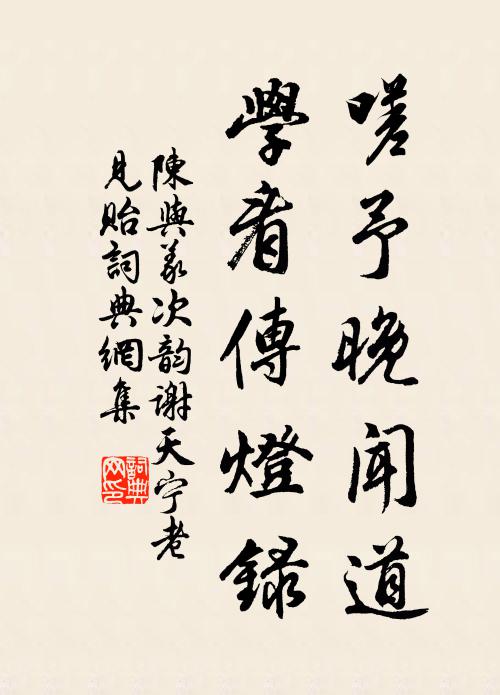 嗟予晚聞道
學看傳燈録
陳與義次韵謝天宁老
見貽詞典網集
詞典网印